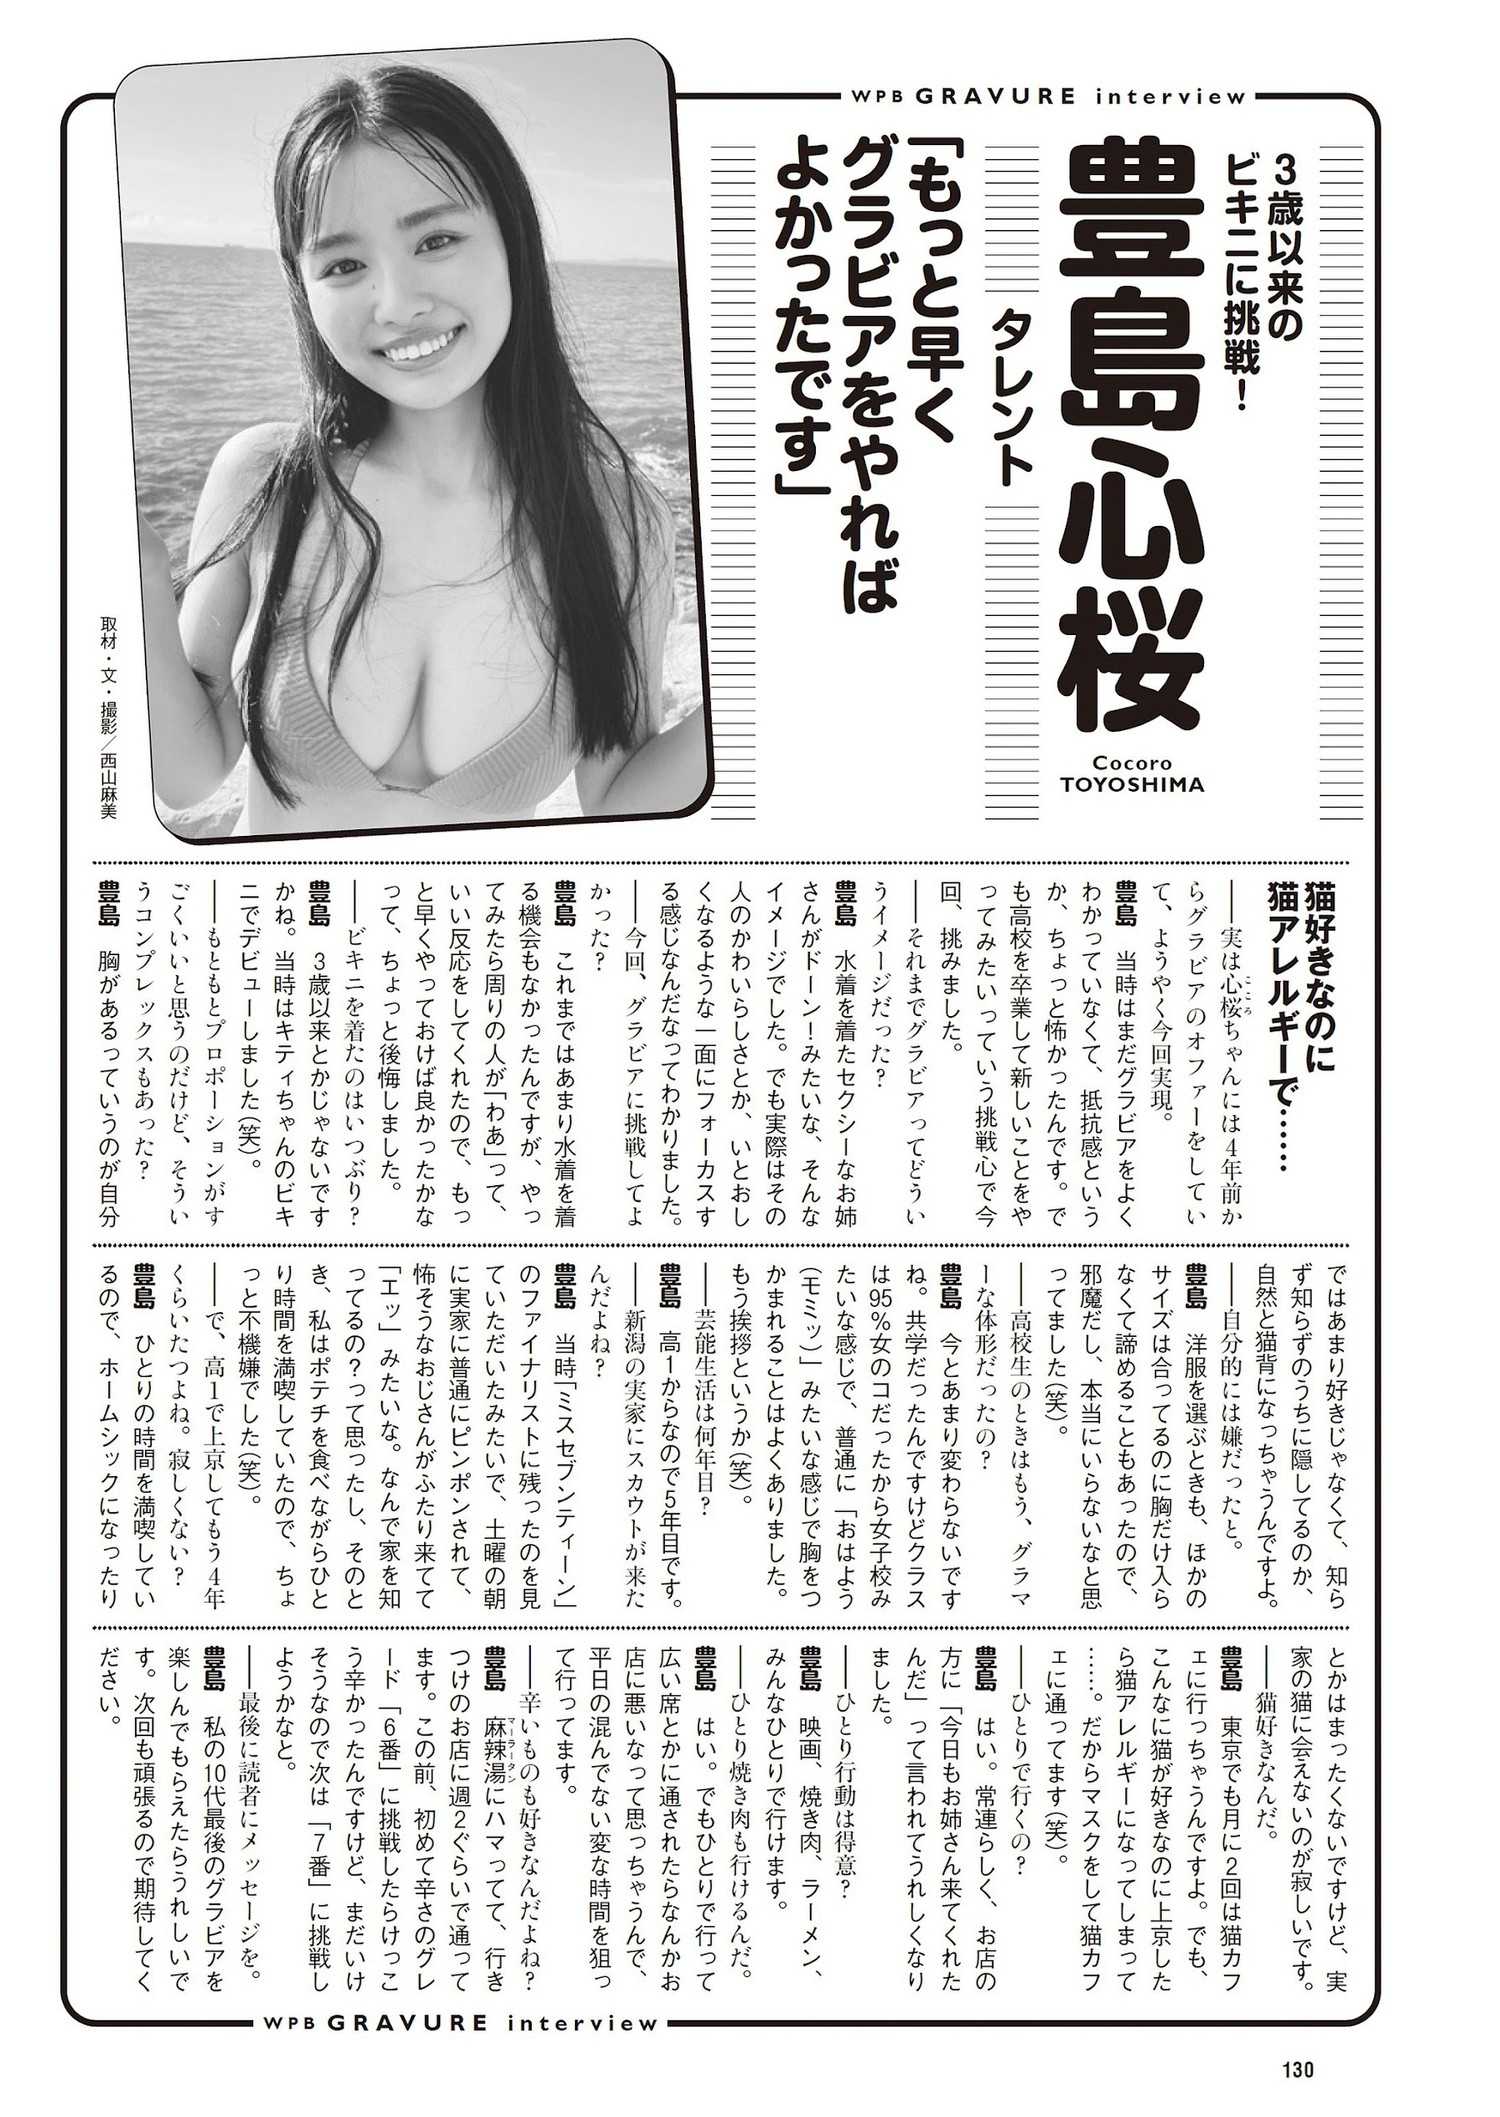 WPB GRAVURE interview
3歳以来の
ビキニに挑戦!
豊島心桜
Cocoro
TOYOSHIMA
タレント
「もっと早く
グラビアをやれば
よかったです」
取材・文・撮影／西山麻美
猫好きなのに
猫アレルギーで……
――実は心桜ちゃんには4年前か
こころ
らグラビアのオファーをしてい
て、ようやく今回実現。
豊島　当時はまだグラビアをよく
わかっていなくて、抵抗感という
か、ちょっと怖かったんです。で
も高校を卒業して新しいことをや
ってみたいっていう挑戦心で今
回、挑みました。
――それまでグラビアってどうい
うイメージだった?
豊島　水着を着たセクシーなお姉
さんがドーン！みたいな、そんな
イメージでした。でも実際はその
人のかわいらしさとか、いとおし
くなるような一面にフォーカスす
る感じなんだなってわかりました。
――今回、グラビアに挑戦してよ
かった?
豊島　これまではあまり水着を着
る機会もなかったんですが、やっ
てみたら周りの人が「わあ」って、
いい反応をしてくれたので、もっ
と早くやっておけば良かったかな
って、ちょっと後悔しました。
――ビキニを着たのはいつぶり?
豊島　3歳以来とかじゃないです
かね。当時はキティちゃんのビキ
ニでデビューしました(笑)。
――もともとプロポーションがす
ごくいいと思うのだけど、そうい
うコンプレックスもあった?
豊島　胸があるっていうのが自分
ではあまり好きじゃなくて、知ら
ず知らずのうちに隠してるのか、
自然と猫背になっちゃうんですよ。
――自分的には嫌だったと。
豊島　洋服を選ぶときも、ほかの
サイズは合ってるのに胸だけ入ら
なくて諦めることもあったので、
邪魔だし、本当にいらないなと思
ってました(笑)。
――高校生のときはもう、グラマ
ーな体形だったの?
豊島　今とあまり変わらないです
ね。共学だったんですけどクラス
は95%女のコだったから女子校み
たいな感じで、普通に「おはよう
(モミッ)」みたいな感じで胸をつ
かまれることはよくありました。
もう挨拶というか(笑)。
――芸能生活は何年目?
豊島　高1からなので5年目です。
――新潟の実家にスカウトが来た
んだよね?
豊島　当時「ミスセブンティーン」
のファイナリストに残ったのを見
ていただいたみたいで、土曜の朝
に実家に普通にピンポンされて、
怖そうなおじさんがふたり来てて
「エッ」みたいな。なんで家を知
ってるの?って思ったし、そのと
き、私はポテチを食べながらひと
り時間を満喫していたので、ちょ
っと不機嫌でした(笑)。
――で、高1で上京してもう4年
くらいたつよね。寂しくない?
豊島　ひとりの時間を満喫してい
るので、ホームシックになったり
とかはまったくないですけど、実
家の猫に会えないのが寂しいです。
――猫好きなんだ。
豊島　東京でも月に2回は猫カフ
ェに行っちゃうんですよ。でも、
こんなに猫が好きなのに上京した
ら猫アレルギーになってしまって
……。だからマスクをして猫カフ
ェに通ってます(笑)。
――ひとりで行くの?
豊島　はい。常連らしく、お店の
方に「今日もお姉さん来てくれた
んだ」って言われてうれしくなり
ました。
――ひとり行動は得意?
豊島　映画、焼き肉、ラーメン、
みんなひとりで行けます。
――ひとり焼き肉も行けるんだ。
豊島　はい。でもひとりで行って
広い席とかに通されたらなんかお
店に悪いなって思っちゃうんで、
平日の混んでない変な時間を狙っ
て行ってます。
――辛いものも好きなんだよね?
豊島　麻辣湯にハマってて、行き
マーラータン
つけのお店に週2ぐらいで通って
ます。この前、初めて辛さのグレ
ード「6番」に挑戦したらけっこ
う辛かったんですけど、まだいけ
そうなので次は「7番」に挑戦し
ようかなと。
――最後に読者にメッセージを。
豊島　私の10代最後のグラビアを
楽しんでもらえたらうれしいで
す。次回も頑張るので期待してく
ださい。
WPB GRAVURE interview
130